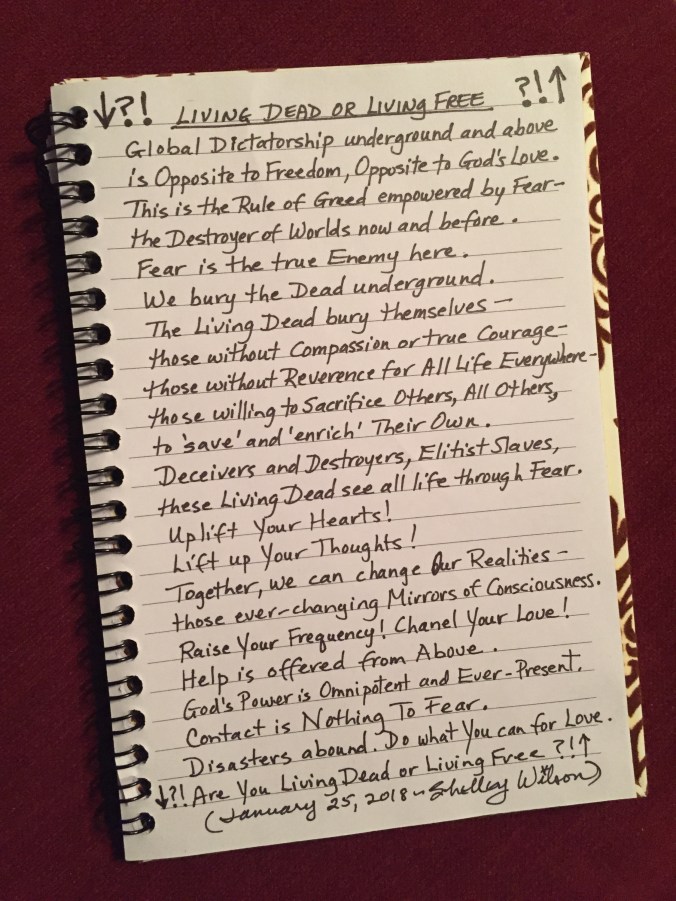 ↓?! LIVING DEAD OR LIVING FREE ?!↑
Global Dictatorship underground and above
is Opposite to Freedom, Opposite to God's Love.
This is the Rule of Greed empowered by Fear-
the Destroyer of Worlds now and before.
Fear is the true Enemy here.
We bury the Dead underground.
The Living Dead bury themselves —
those without Compassion or true Courage-
those without Reverence for All Life Everywhere-
those willing to Sacrifice Others, All Others,
to 'save' and 'enrich' Their Own.
Deceivers and Destroyers, Elitist Slaves,
these Living Dead see all life through Fear.
Uplift Your Hearts!
Lift up Your Thoughts!
Together, we can change Our Realities -
those ever-changing Mirrors of Consciousness.
Raise Your Frequency! Chanel Your Love!
Help is offered from Above.
God's Power is Omnipotent and Ever-Present.
Contact is Nothing To Fear.
Disasters abound. Do what You can for Love.
↓?! Are You Living Dead or Living Free ?!↑
(January 25, 2018 ~ Shelley Wilson)